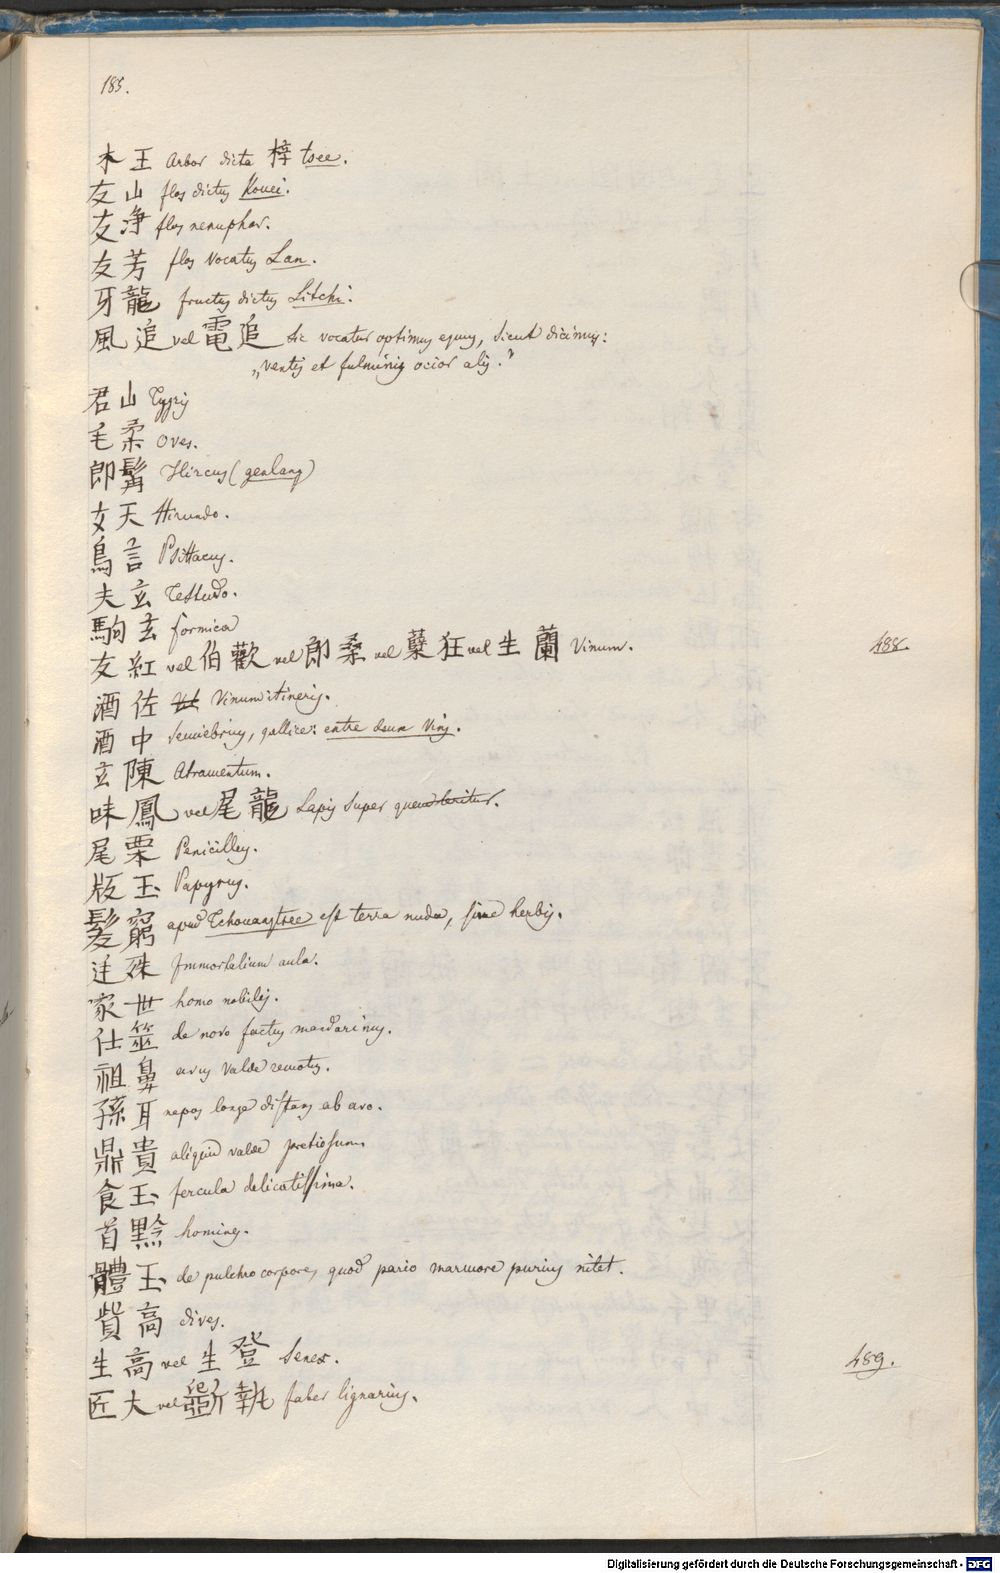 185.
木王 Arbor dicta 梓 tsee.
友山 flos dictus Kouei.
友淨 flos nenuphar.
友芳 flos vocatus Lan.
牙龍 fructus dictus Litchi.
風追 vel 電追 sic vocatur optimus equus, sicut dicimus:
„ventis et fulminis ocior alis."
君山 Tygris
毛柔 Oves.
郎髯 Hircus (genlang)
女天 Hirundo.
鳥言 Psittacus.
夫玄 Testudo.
駒玄 formica
友紅 vel 伯歡 vel 郎桑 vel 蘖狂 vel 生蘭 Vinum.
488.
酒佐 Vinum itineris.
酒中 gallice: entre deux vins.
玄陳 Atramentum.
味鳳 vel 尾龍 Lapis super quem teritur.
尾栗 Penicillus.
版玉 Papyrus.
髮窮 apud Tchouangtsee est terra nuda, sine herbis.
廷殊 Immortalium aula.
家世 homo nobilis.
仕筮 de novo factus mandarinus.
祖鼻 avus valde remotus.
孫耳 nepos longe distans ab avo.
鼎貴 aliquid valde pretiosum.
食玉 fercula delicatissima.
首黔 homines.
體玉 de pulchro corpore, quod pario marmore purius nitet.
貲高 dives.
生高 vel 生登 Senex.
489.
匠大 vel 斲執 faber lignarius.
Digitalisierung gefördert durch die Deutsche Forschungsgemeinschaft - DFG